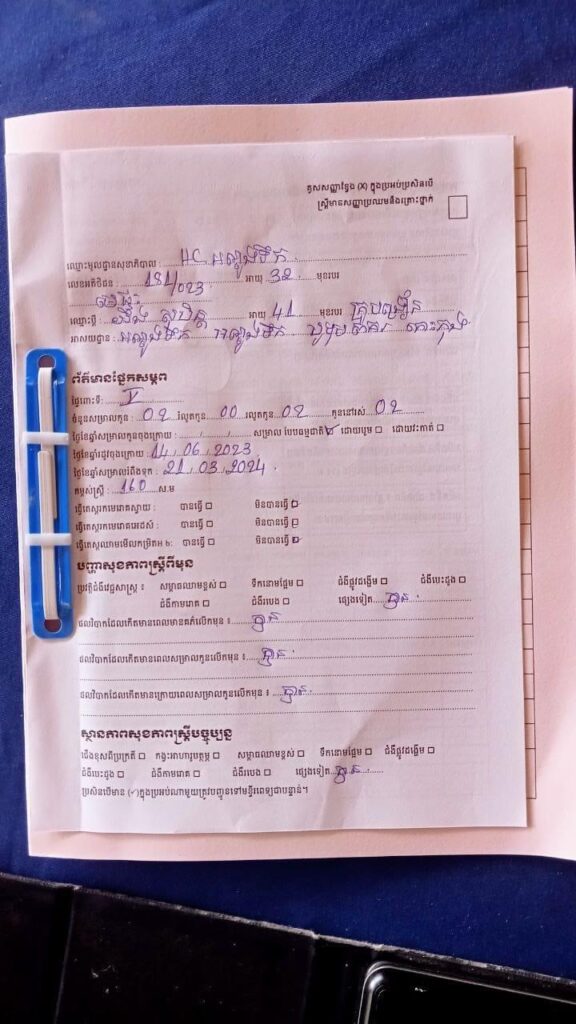 គូសសញ្ញាខ្វែង (X) ក្នុងប្រអប់ប្រសិនបើ
ស្ត្រីមានសញ្ញាប្រឈមនឹងគ្រោះថ្នាក់
ឈ្មោះមូលដ្ឋានសុខាភិបាល : HC អណ្តូងទឹក
លេខអតិថិជន : 181/023 អាយុ 32 មុខរបរ
មេផ្ទះ
ឈ្មោះប្តី : អាយុ 41 មុខរបរ គ្រូបង្រៀន
អាសយដ្ឋាន : អណ្តូងទឹក អណ្តូងទឹក បូទុមសាគរ កោះកុង
ព័ត៌មានផ្នែកសម្ភព
ផ្ទៃពោះទី: V
ចំនួនសម្រាលកូន : 02 រំលូតកូន 00 រលូតកូន 02 កូននៅរស់ 02
ថ្ងៃខែឆ្នាំសម្រាលកូនចុងក្រោយ : / / សម្រាល បែបធម្មជាតិ ☑ ដោយបូម ☐ ដោយវះកាត់ ☐
ថ្ងៃខែឆ្នាំរដូវចុងក្រោយ 14 / 06 / 2023
ថ្ងៃខែឆ្នាំសម្រាលរំពឹងទុក : 21 / 03 / 2024
កម្ពស់ស្ត្រី : 160 ស.ម
ធ្វើតេស្តរកមេរោគស្វាយ : បានធ្វើ ☐ មិនបានធ្វើ ☐
ធ្វើតេស្តរកមេរោគអេដស៍ : បានធ្វើ ☐ មិនបានធ្វើ ☐
ធ្វើតេស្តឈាមមើលកម្រិតអេ b: បានធ្វើ ☐ មិនបានធ្វើ ☑
បញ្ហាសុខភាពស្ត្រីពីមុន
ប្រវត្តិជំងឺវេជ្ជសាស្ត្រ : សម្ពាធឈាមខ្ពស់ ☐ ទឹកនោមផ្អែម ☐ ជំងឺផ្លូវដង្ហើម ☐ ជំងឺបេះដូង ☐
ជំងឺកាមរោគ ☐ ជំងឺរបេង ☐ ផ្សេងទៀត គ្មាន
ផលវិបាកដែលកើតមានពេលមានគភ៌លើកមុន : គ្មាន
ផលវិបាកដែលកើតមានពេលសម្រាលកូនលើកមុន : គ្មាន
ផលវិបាកដែលកើតមានក្រោយពេលសម្រាលកូនលើកមុន : គ្មាន
ស្ថានភាពសុខភាពស្ត្រីបច្ចុប្បន្ន
ជើងខុសពីប្រក្រតី ☐ កង្វះអាហារូបត្ថម្ភ ☐ សម្ពាធឈាមខ្ពស់ ☐ ទឹកនោមផ្អែម ☐ ជំងឺផ្លូវដង្ហើម ☐
ជំងឺបេះដូង ☐ ជំងឺកាមរោគ ☐ ជំងឺរបេង ☐ ផ្សេងទៀត គ្មាន
ប្រសិនបើមាន (✓) ក្នុងប្រអប់ណាមួយត្រូវបញ្ជូនទៅមន្ទីរពេទ្យជាបន្ទាន់។